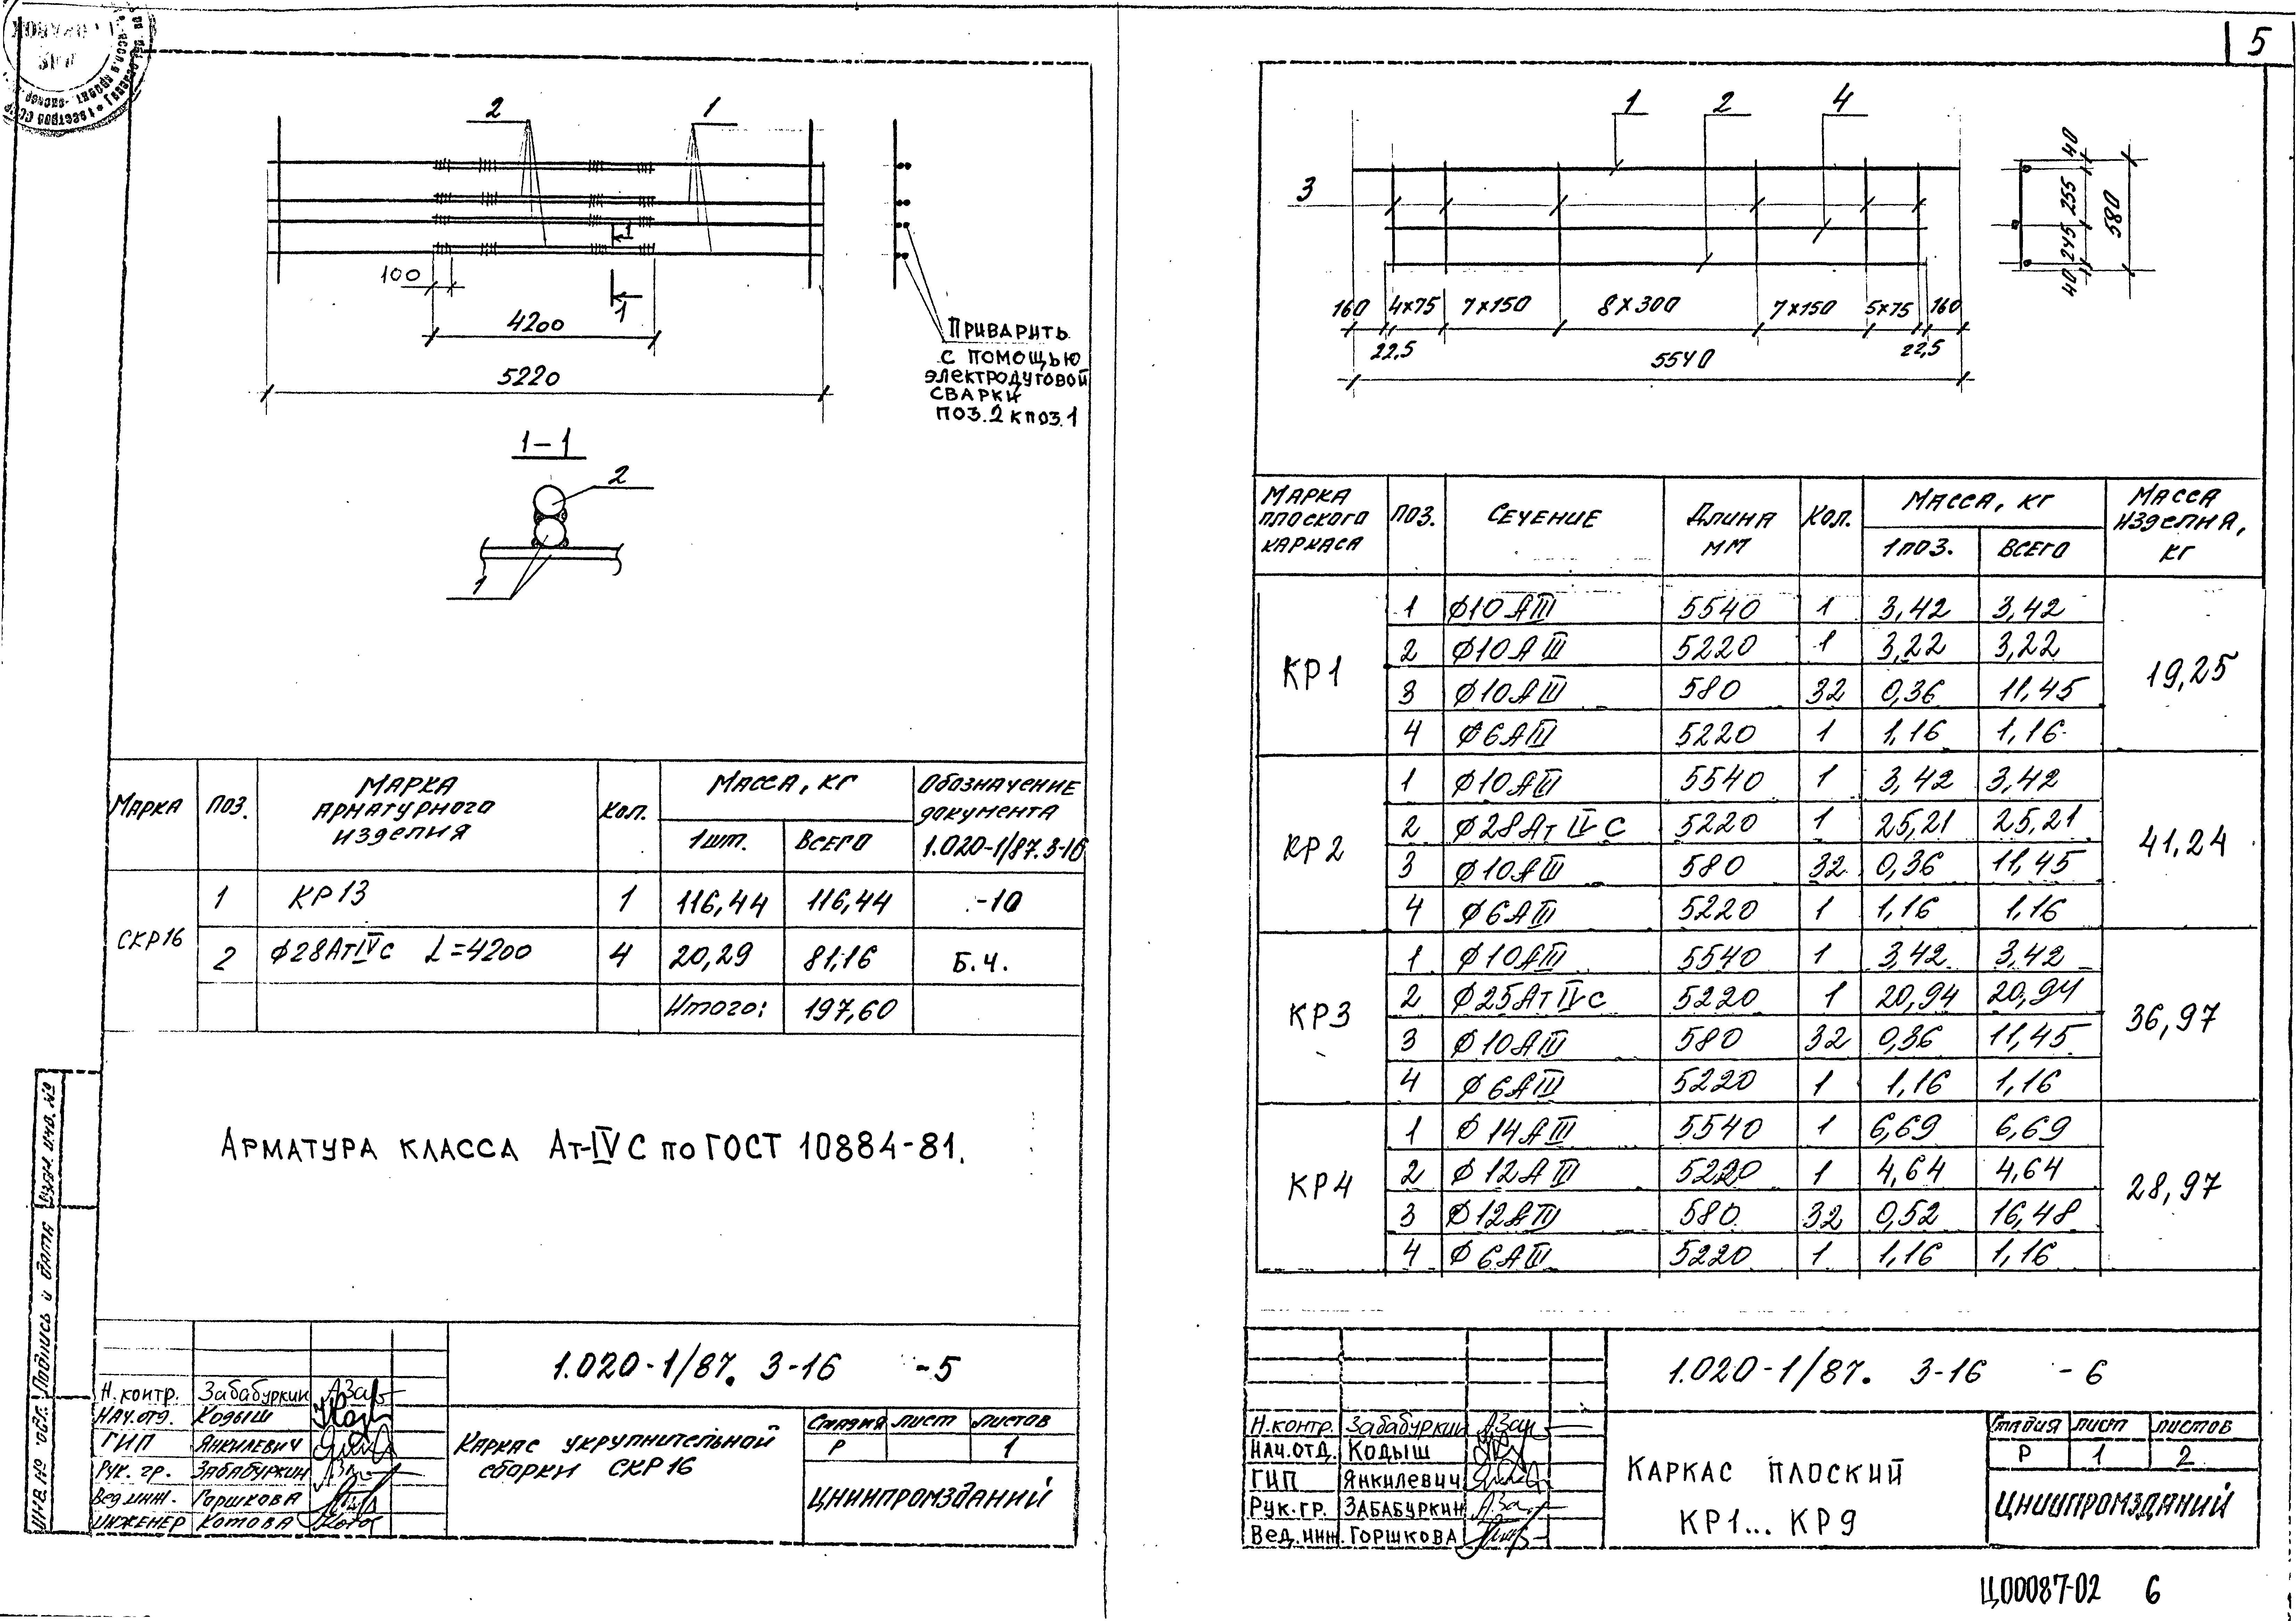 5
2 1
1
100
1
4200
5220
Приварить
с помощью
электродуговой
сварки
поз.2 к поз.1
1-1
2
1
Марка Поз. Марка арматурного изделия Кол. Масса, кг Обозначение документа 1.020-1/87.3-16
1шт. Всего
СКР16 1 КР13 1 116,44 116,44 -10
2 ф28АтIVс L=4200 4 20,29 81,16 Б.ч.
Итого: 197,60
Арматура класса Ат-IVС по ГОСТ 10884-81.
Инв. № подл. Подпись и дата Взам. инв. №
1.020-1/87. 3-16 -5
Н.контр. Забабуркин
Нач.отд. Кодыш
ГИП Янкилевич
Рук. гр. Забабуркин
Вед.инж. Горшкова
Инженер Котова
Каркас укрупнительной
сборки СКР16
Стадия Лист Листов
Р 1
ЦНИИпромзданий
1 2 4
3
160 4×75 7×150 8×300 7×150 5×75 160
22,5 22,5
5540
40 255 245 40 580
Марка плоского каркаса Поз. Сечение Длина мм Кол. Масса, кг Масса изделия, кг
1 поз. Всего
КР1 1 ф10АIII 5540 1 3,42 3,42 19,25
2 ф10АIII 5220 1 3,22 3,22
3 ф10АIII 580 32 0,36 11,45
4 ф6АIII 5220 1 1,16 1,16
КР2 1 ф10АIII 5540 1 3,42 3,42 41,24
2 ф28АтIVС 5220 1 25,21 25,21
3 ф10АIII 580 32 0,36 11,45
4 ф6АIII 5220 1 1,16 1,16
КР3 1 ф10АIII 5540 1 3,42 3,42 36,97
2 ф25АтIVС 5220 1 20,94 20,94
3 ф10АIII 580 32 0,36 11,45
4 ф6АIII 5220 1 1,16 1,16
КР4 1 ф14АIII 5540 1 6,69 6,69 28,97
2 ф12АIII 5220 1 4,64 4,64
3 ф12АIII 580 32 0,52 16,48
4 ф6АIII 5220 1 1,16 1,16
1.020-1/87. 3-16 -6
Н.контр. Забабуркин
Нач.отд. Кодыш
ГИП Янкилевич
Рук.гр. Забабуркин
Вед.инж. Горшкова
Каркас плоский
КР1... КР9
Стадия Лист Листов
Р 1 2
ЦНИИпромзданий
Ц00087-02 6